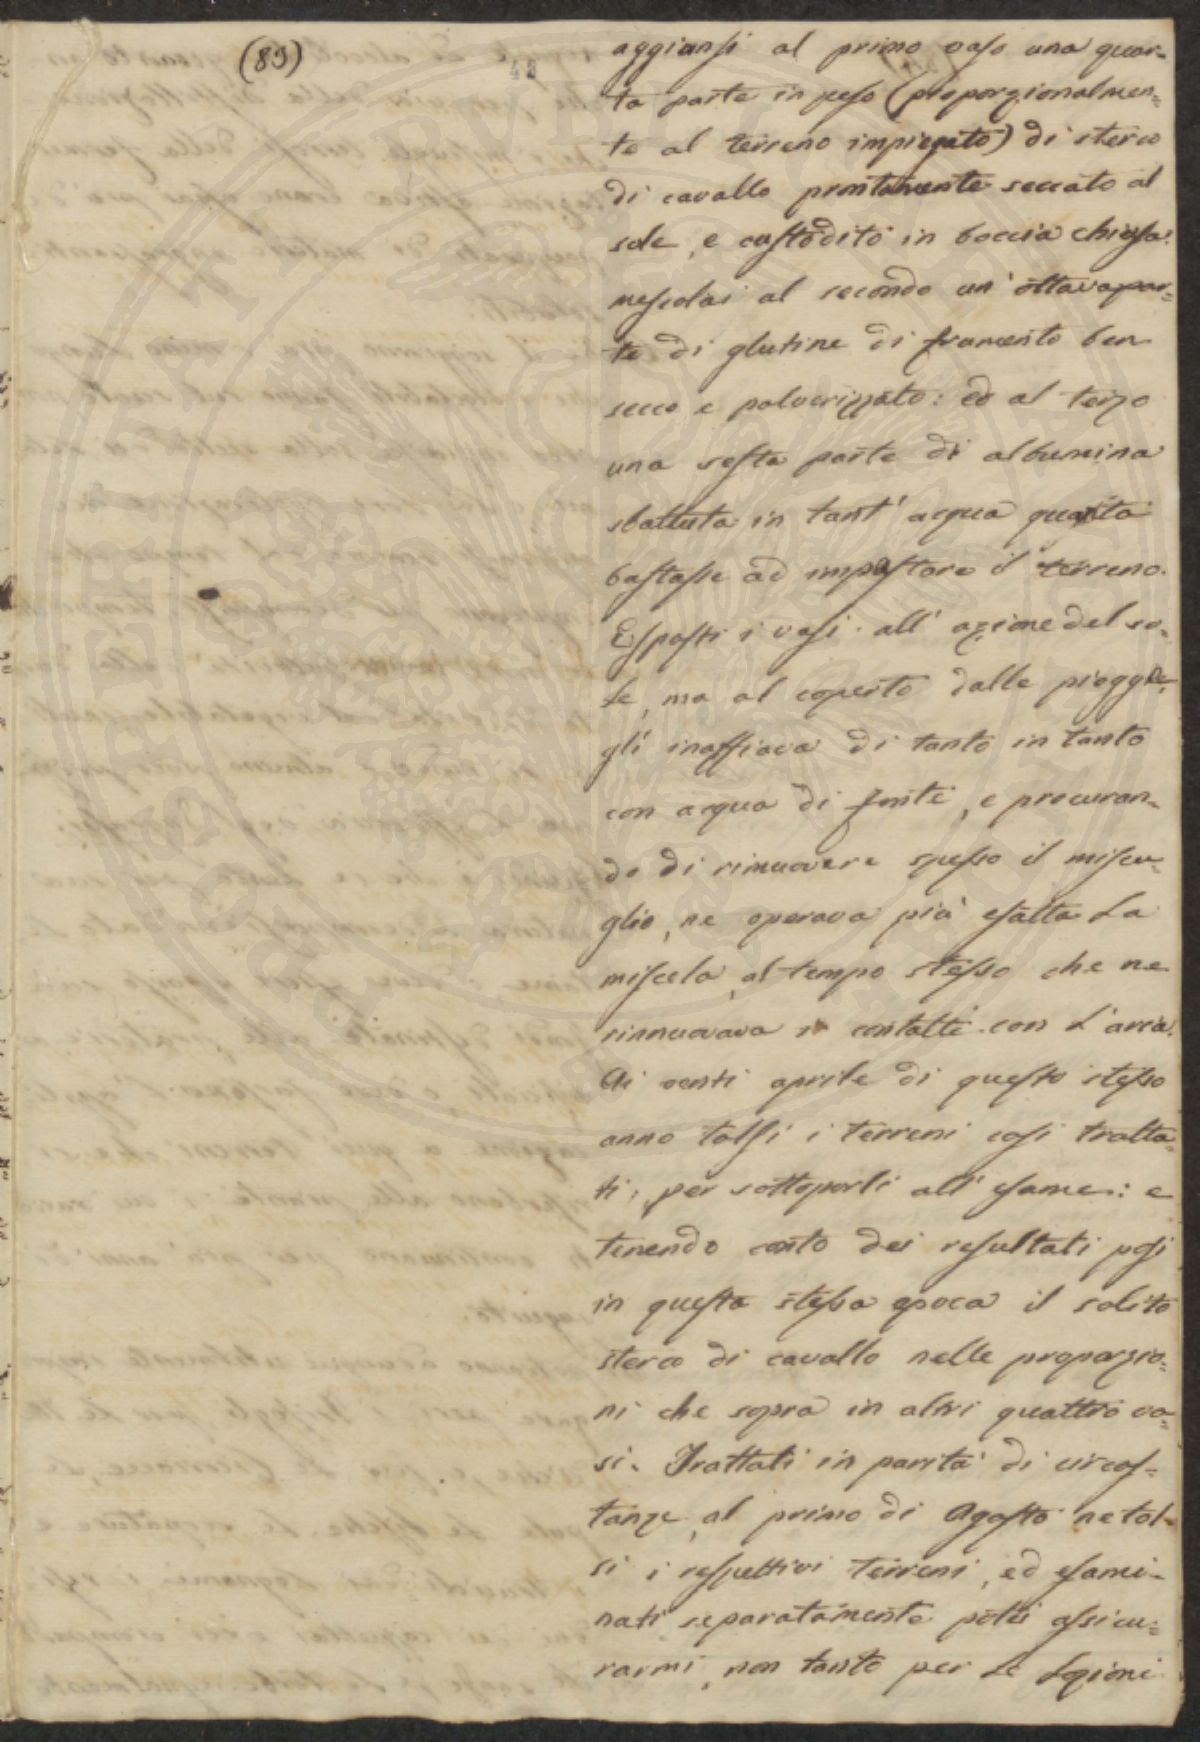 (89)
aggiunsi al primo vaso una quar-
ta parte in peso (proporzionalmen-
te al terreno impiegato) di sterco
di cavallo prontamente seccato al
sole, e custodito in boccia chiusa:
mescolai al secondo un' ottava par-
te di glutine di frumento ben
secco e polverizzato: ed al terzo
una sesta parte di albumina
sbattuta in tant' acqua quanta
bastasse ad impastare il terreno.
Esposti i vasi all' azione del so-
le, ma al coperto dalle piogge,
gli inaffiava di tanto in tanto
con acqua di fonte, e procuran-
do di rimuovere spesso il miscu-
glio, ne operava più esatta la
miscela, al tempo stesso che ne
rinnuovava i contatti con l'aria.
Ai venti aprile di questo stesso
anno tolsi i terreni così tratta-
ti, per sottoporli all' esame: e
tenendo conto dei resultati posi
in questa stessa epoca il solito
sterco di cavallo nelle proporzio-
ni che sopra in altri quattro va-
si. Trattati in parità di circos-
tanze, al primo di Agosto ne tol-
si i respettivi terreni, ed esami-
nati separatamente potei assicu-
rarmi, non tanto per le